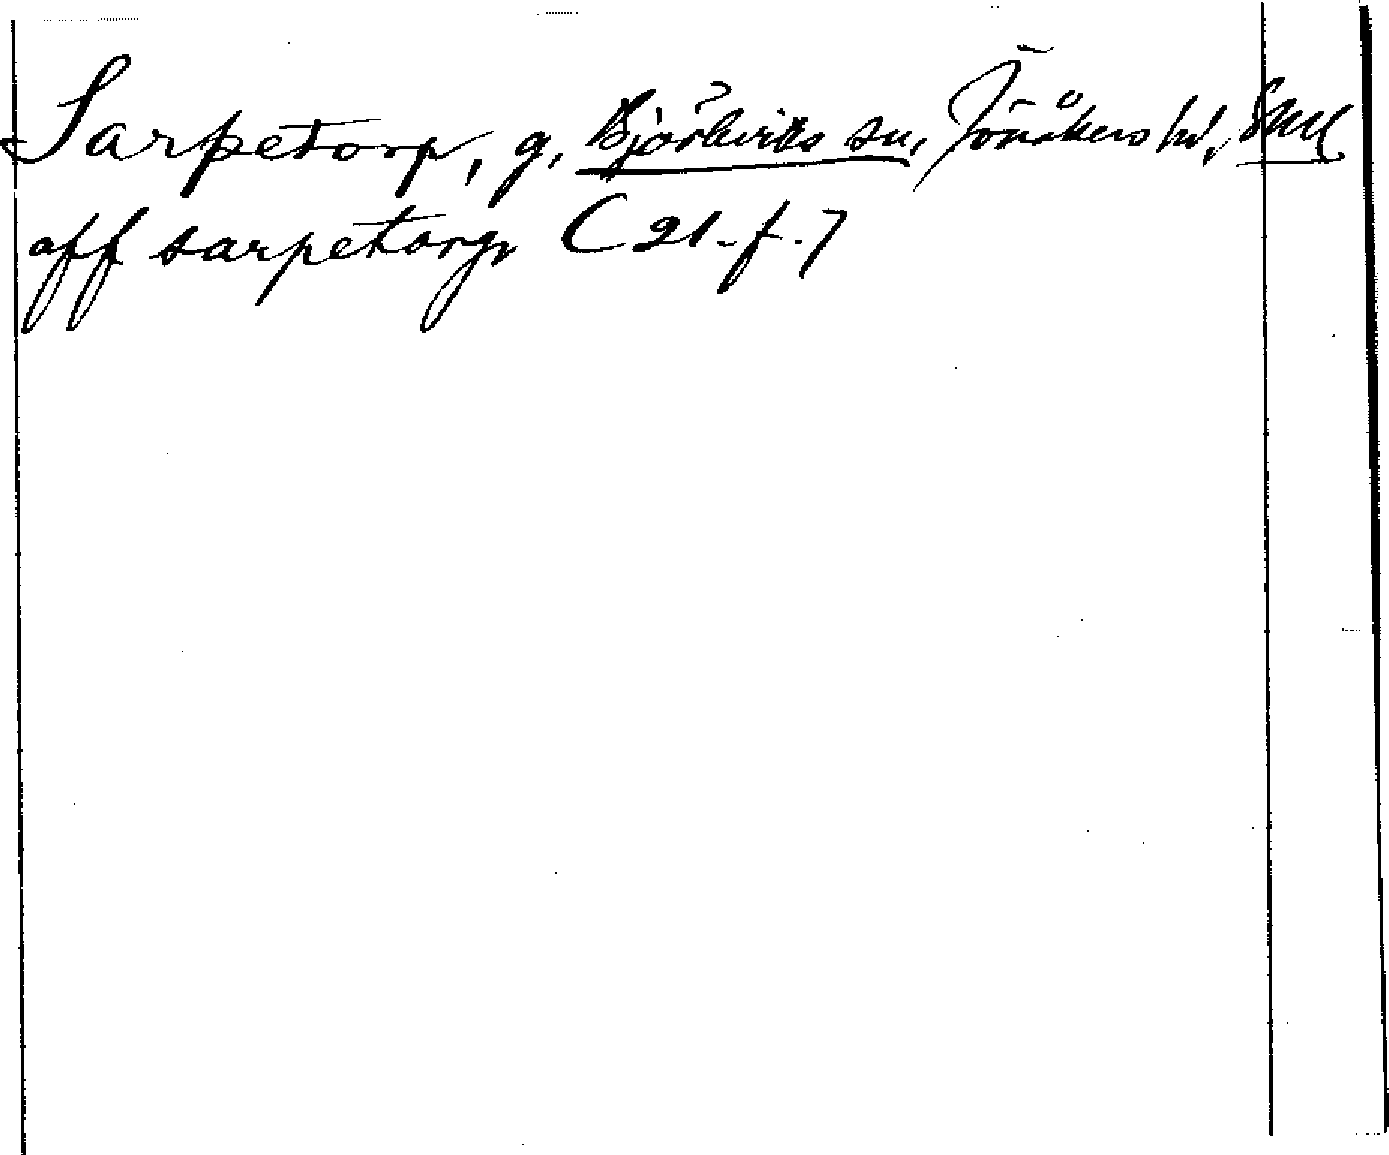 Sarpetorp, g, Björkviks sn, Jönåkers hd, Sml
aff sarpetorp (21-f.7